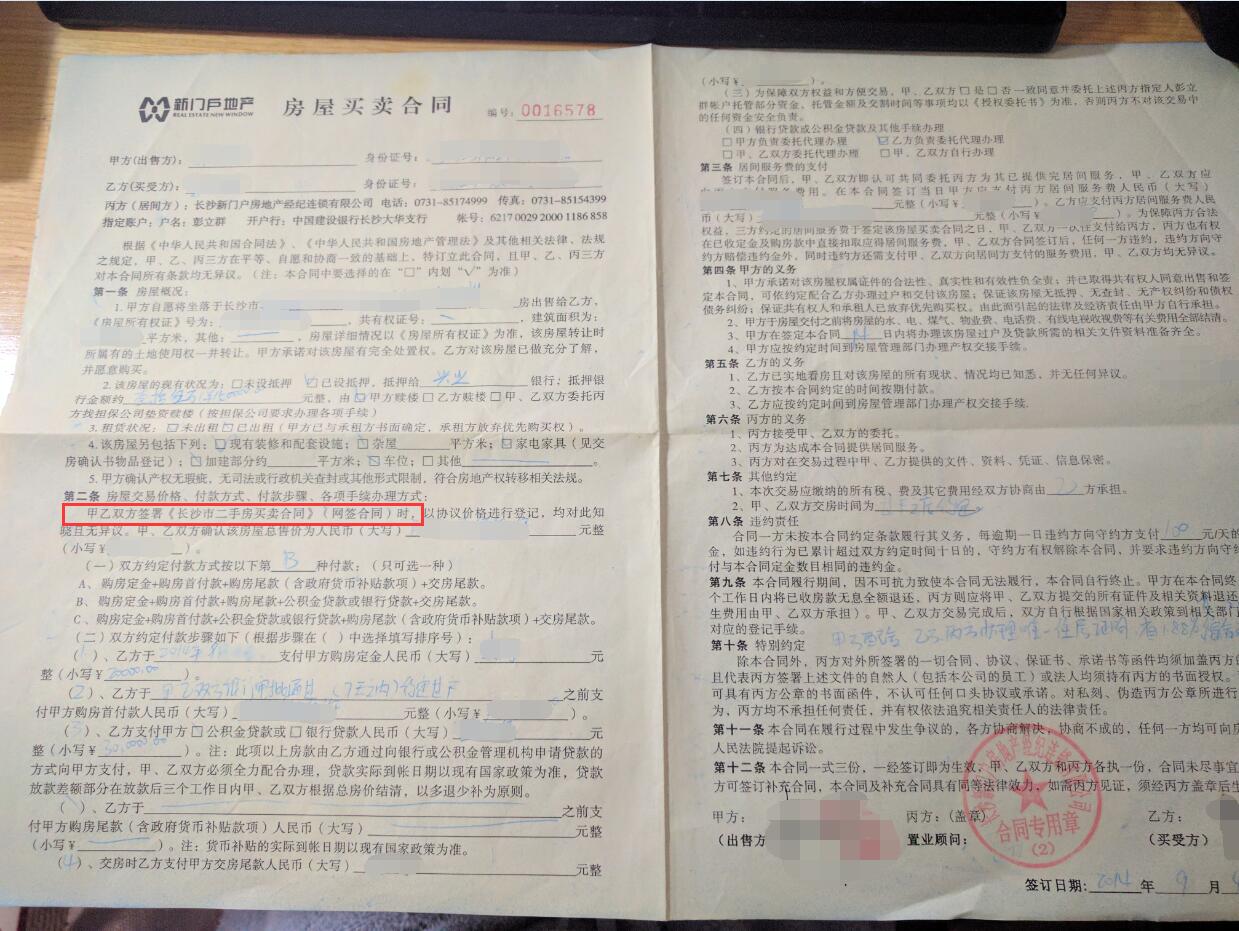 新门户地产
REAL ESTATE NEW WINDOW
房屋买卖合同
编号: 0016578
甲方(出售方): 身份证号:
乙方(买受方): 身份证号:
丙方(居间方): 长沙新门户房地产经纪连锁有限公司 电话: 0731-85174999 传真: 0731-85154399
指定账户: 户名: 彭立群 开户行: 中国建设银行长沙大华支行 帐号: 6217 0029 2000 1186 858
根据《中华人民共和国合同法》、《中华人民共和国房地产管理法》及其他相关法律、法规
之规定, 甲、乙、丙三方在平等、自愿和协商一致的基础上, 特订立此合同, 且甲、乙、丙三方
对本合同所有条款均无异议。(注: 本合同中要选择的在“□”内划“√”为准)
第一条 房屋概况:
1. 甲方自愿将坐落于长沙市 房出售给乙方,
《房屋所有权证》号为: , 共有权证号: , 建筑面积为:
平方米, 其他: , 房屋详细情况以《房屋所有权证》为准, 该房屋转让时
所属有的土地使用权一并转让。甲方承诺对该房屋有完全处置权。乙方对该房屋已做充分了解,
并愿意购买。
2. 该房屋的现有状况为: □未设抵押 ☑已设抵押, 抵押给 兴业 银行; 抵押银
行金额约 元整, 由☑甲方赎楼□乙方赎楼□甲、乙双方委托丙
方找担保公司垫资赎楼 (按担保公司要求办理各项手续)
3. 租赁状况: □未出租□已出租 (甲方已与承租方书面确定, 承租方放弃优先购买权)。
4. 该房屋另包括下列: □现有装修和配套设施; □杂屋 平方米; □家电家具 (见交
房确认书物品登记); □加建部分约 平方米; □车位; □其他 。
5. 甲方确认产权无瑕疵, 无司法或行政机关查封或其他形式限制, 符合房地产转移相关法规。
第二条 房屋交易价格、付款方式、付款步骤、各项手续办理方式:
甲乙双方签署《长沙市二手房买卖合同》(网签合同) 时, 以协议价格进行登记, 均对此知
晓且无异议。甲、乙双方确认该房屋总售价为人民币 (大写) 元整
(小写¥ )。
(一) 双方约定付款方式按以下第 B 种付款: (只可选一种)
A、购房定金+购房首付款+购房尾款 (含政府货币补贴款项)+交房尾款。
B、购房定金+购房首付款+购房尾款+公积金贷款或银行贷款+交房尾款。
C、购房定金+购房首付款+公积金贷款或银行贷款+购房尾款 (含政府货币补贴款项)+交房尾款。
(二) 双方约定付款步骤如下 (根据步骤在 ( ) 中选择填写排序号):
(1)、乙方于 2014年 支付甲方购房定金人民币 (大写) 元
整 (小写¥ 20000.00 )。
(2)、乙方于 之前支
付甲方购房首付款人民币 (大写) 元整 (小写¥ )。
(3)、乙方支付甲方□公积金贷款或□银行贷款人民币 (大写) 元
整 (小写¥ )。注: 此项以上房款由乙方通过向银行或公积金管理机构申请贷款的
方式向甲方支付, 甲、乙双方必须全力配合办理, 贷款实际到帐日期以现有国家政策为准, 贷款
放款差额部分在放款后三个工作日内甲、乙双方根据总房价结清, 以多退少补为原则。
( )、乙方于 之前支
付甲方购房尾款 (含政府货币补贴款项) 人民币 (大写) 元整
(小写¥ )。注: 货币补贴的实际到帐日期以现有国家政策为准。
(4)、交房时乙方支付甲方交房尾款人民币 (大写) 元整
(小写¥ )。
(三) 为保障双方权益和方便交易, 甲、乙双方□是□否一致同意并委托上述丙方指定人彭立
群帐户托管部分资金, 托管金额及交割时间等事项均以《授权委托书》为准, 否则丙方不对该交易中
的任何资金安全负责。
(四) 银行贷款或公积金贷款及其他手续办理
□甲方负责委托代理办理 ☑乙方负责委托代理办理
□甲、乙双方委托代理办理 □甲、乙双方自行办理
第三条 居间服务费的支付
签订本合同后, 甲、乙双方即认可共同委托丙方为其已提供完居间服务, 甲、乙双方应
服务费用。在本合同签订当日甲方应支付丙方居间服务费人民币 (大写)
元整 (小写¥ )。乙方应支付丙方居间服务费人民
币 (大写) 元整 (小写¥ )。为保障丙方合法
权益, 三方约定的居间服务费于签定该房屋买卖合同之日, 甲、乙双方一次性支付给丙方, 丙方也有权
在已收定金及购房款中直接扣取应得居间服务费, 甲、乙双方合同签订后, 任何一方违约, 违约方向守
约方赔偿违约金外, 同时违约方还需支付甲、乙双方向居间方支付的服务费用, 甲、乙双方均无异议。
第四条 甲方的义务
1、甲方承诺对该房屋权属证件的合法性、真实性和有效性负全责; 并已取得共有权人同意出售和签
定本合同, 可依约定配合乙方办理过户和交付该房屋; 保证该房屋无抵押、无查封、无产权纠纷和债权
债务纠纷; 保证共有权人和承租人已放弃优先购买权。由此而引起的法律及经济责任由甲方自行承担。
2、甲方于房屋交付之前将房屋的水、电、煤气、物业费、电话费、有线电视收视费等有关费用全部结清。
3、甲方在签定本合同 日内将办理该房屋过户及贷款所需的相关文件资料准备齐全。
4、甲方应按约定时间到房屋管理部门办理产权交接手续。
第五条 乙方的义务
1、乙方已实地看房且对该房屋的所有现状、情况均已知悉, 并无任何异议。
2、乙方按本合同约定的时间按期付款。
3、乙方应按约定时间到房屋管理部门办理产权交接手续.
第六条 丙方的义务
1、丙方接受甲、乙双方的委托。
2、丙方为达成本合同提供居间服务。
3、丙方对在交易过程中甲、乙方提供的文件、资料、凭证、信息保密。
第七条 其他约定
1、本次交易应缴纳的所有税、费及其它费用经双方协商由 方承担。
2、甲、乙双方交房时间为
第八条 违约责任
合同一方未按本合同约定条款履行其义务, 每逾期一日违约方向守约方支付 100 元/天的
金, 如违约行为已累计超过双方约定时间十日的, 守约方有权解除本合同, 并要求违约方向守约
付与本合同定金数目相同的违约金。
第九条 本合同履行期间, 因不可抗力致使本合同无法履行, 本合同自行终止。甲方在本合同终
个工作日内将已收房款无息全额退还, 丙方则应将甲、乙双方提交的所有证件及相关资料退还
生费用由甲、乙双方承担)。甲、乙双方交易完成后, 双方自行根据国家相关政策到相关部门
对应的登记手续。
第十条 特别约定
除本合同外, 丙方对外所签署的一切合同、协议、保证书、承诺书等函件均须加盖丙方的
且代表丙方签署上述文件的自然人 (包括本公司的员工) 或法人均须持有丙方的书面授权。
可具有丙方公章的书面函件, 不认可任何口头协议或承诺。对私刻、伪造丙方公章所进行
为、丙方均不承担任何责任, 并有权依法追究相关责任人的法律责任。
第十一条 本合同在履行过程中发生争议的, 各方协商解决, 协商不成的, 任何一方均可向房
人民法院提起诉讼。
第十二条 本合同一式三份, 一经签订即为生效, 甲、乙双方和丙方各执一份, 合同未尽事宜
方可签订补充合同, 本合同及补充合同具有同等法律效力, 如需丙方见证, 须经丙方盖章后生
甲方: 丙方: (盖章) 乙方:
(出售方 置业顾问: (买受方)
合同专用章
(2)
签订日期: 2014 年 9 月